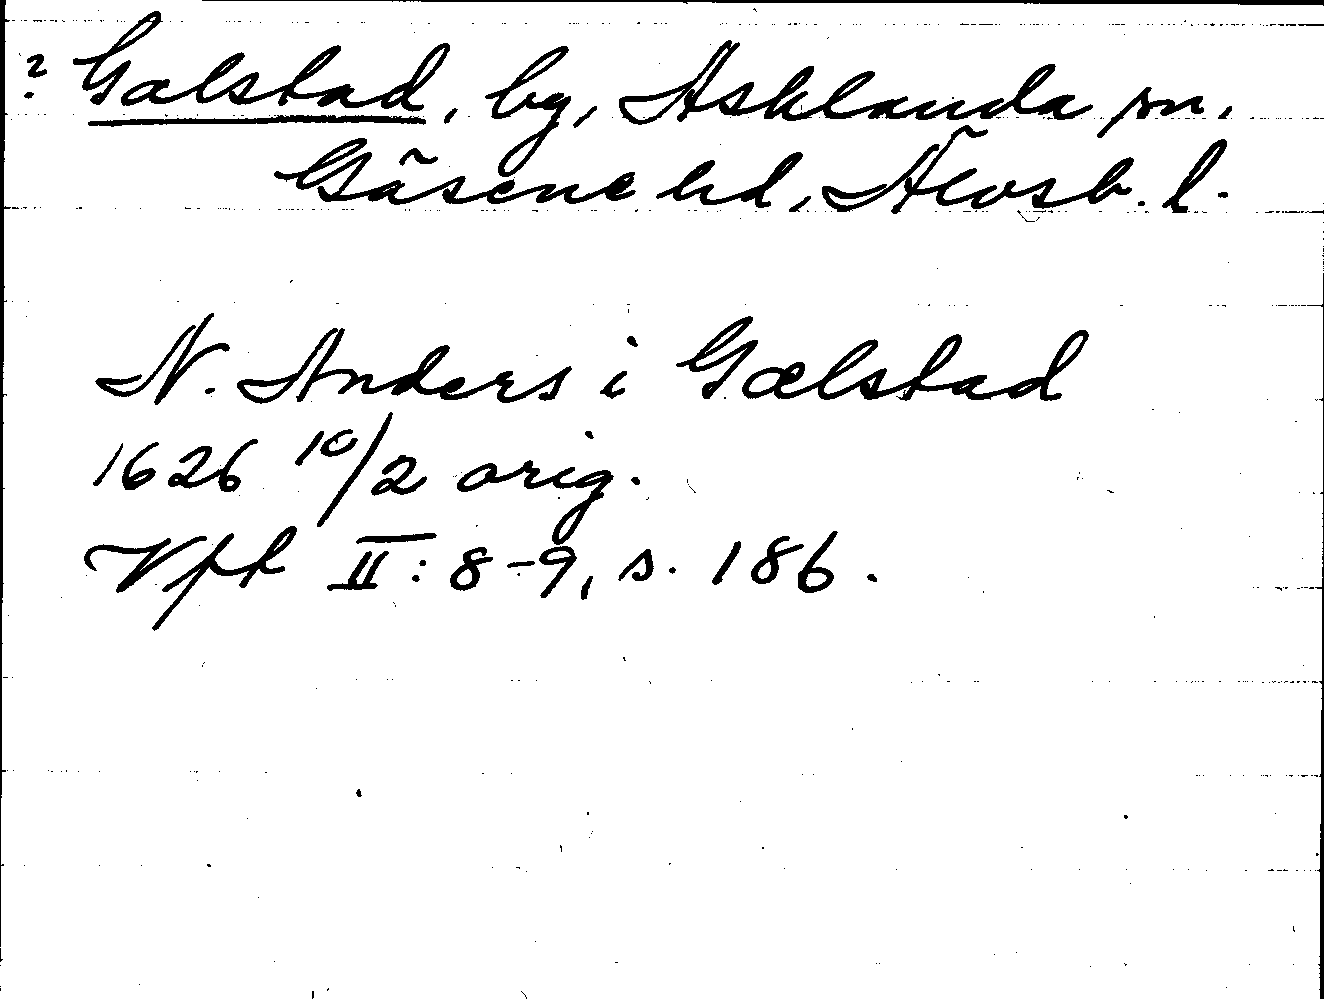 ? Galstad, by, Asklanda sn,
Gäsene hd, Älvsb. l.
N. Anders i Gælstad
1626 10/2 orig.
Vfh II: 8-9, s. 186.